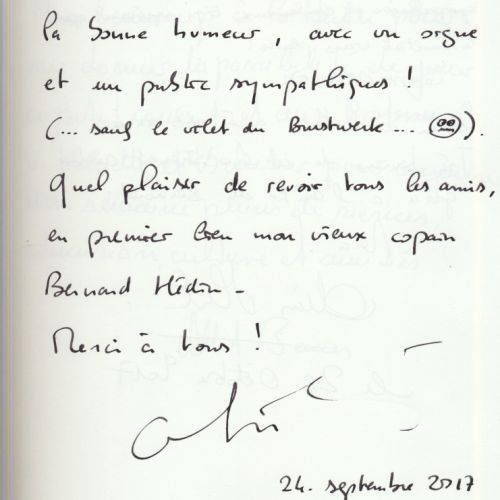 la bonne humeur, avec un orgue
et un public sympathiques !
(... sauf le volet du Brustwerk ... ).
Quel plaisir de revoir tous les amis,
en premier lieu mon vieux copain
Bernard Hédin -
Merci à tous !
24. septembre 2017